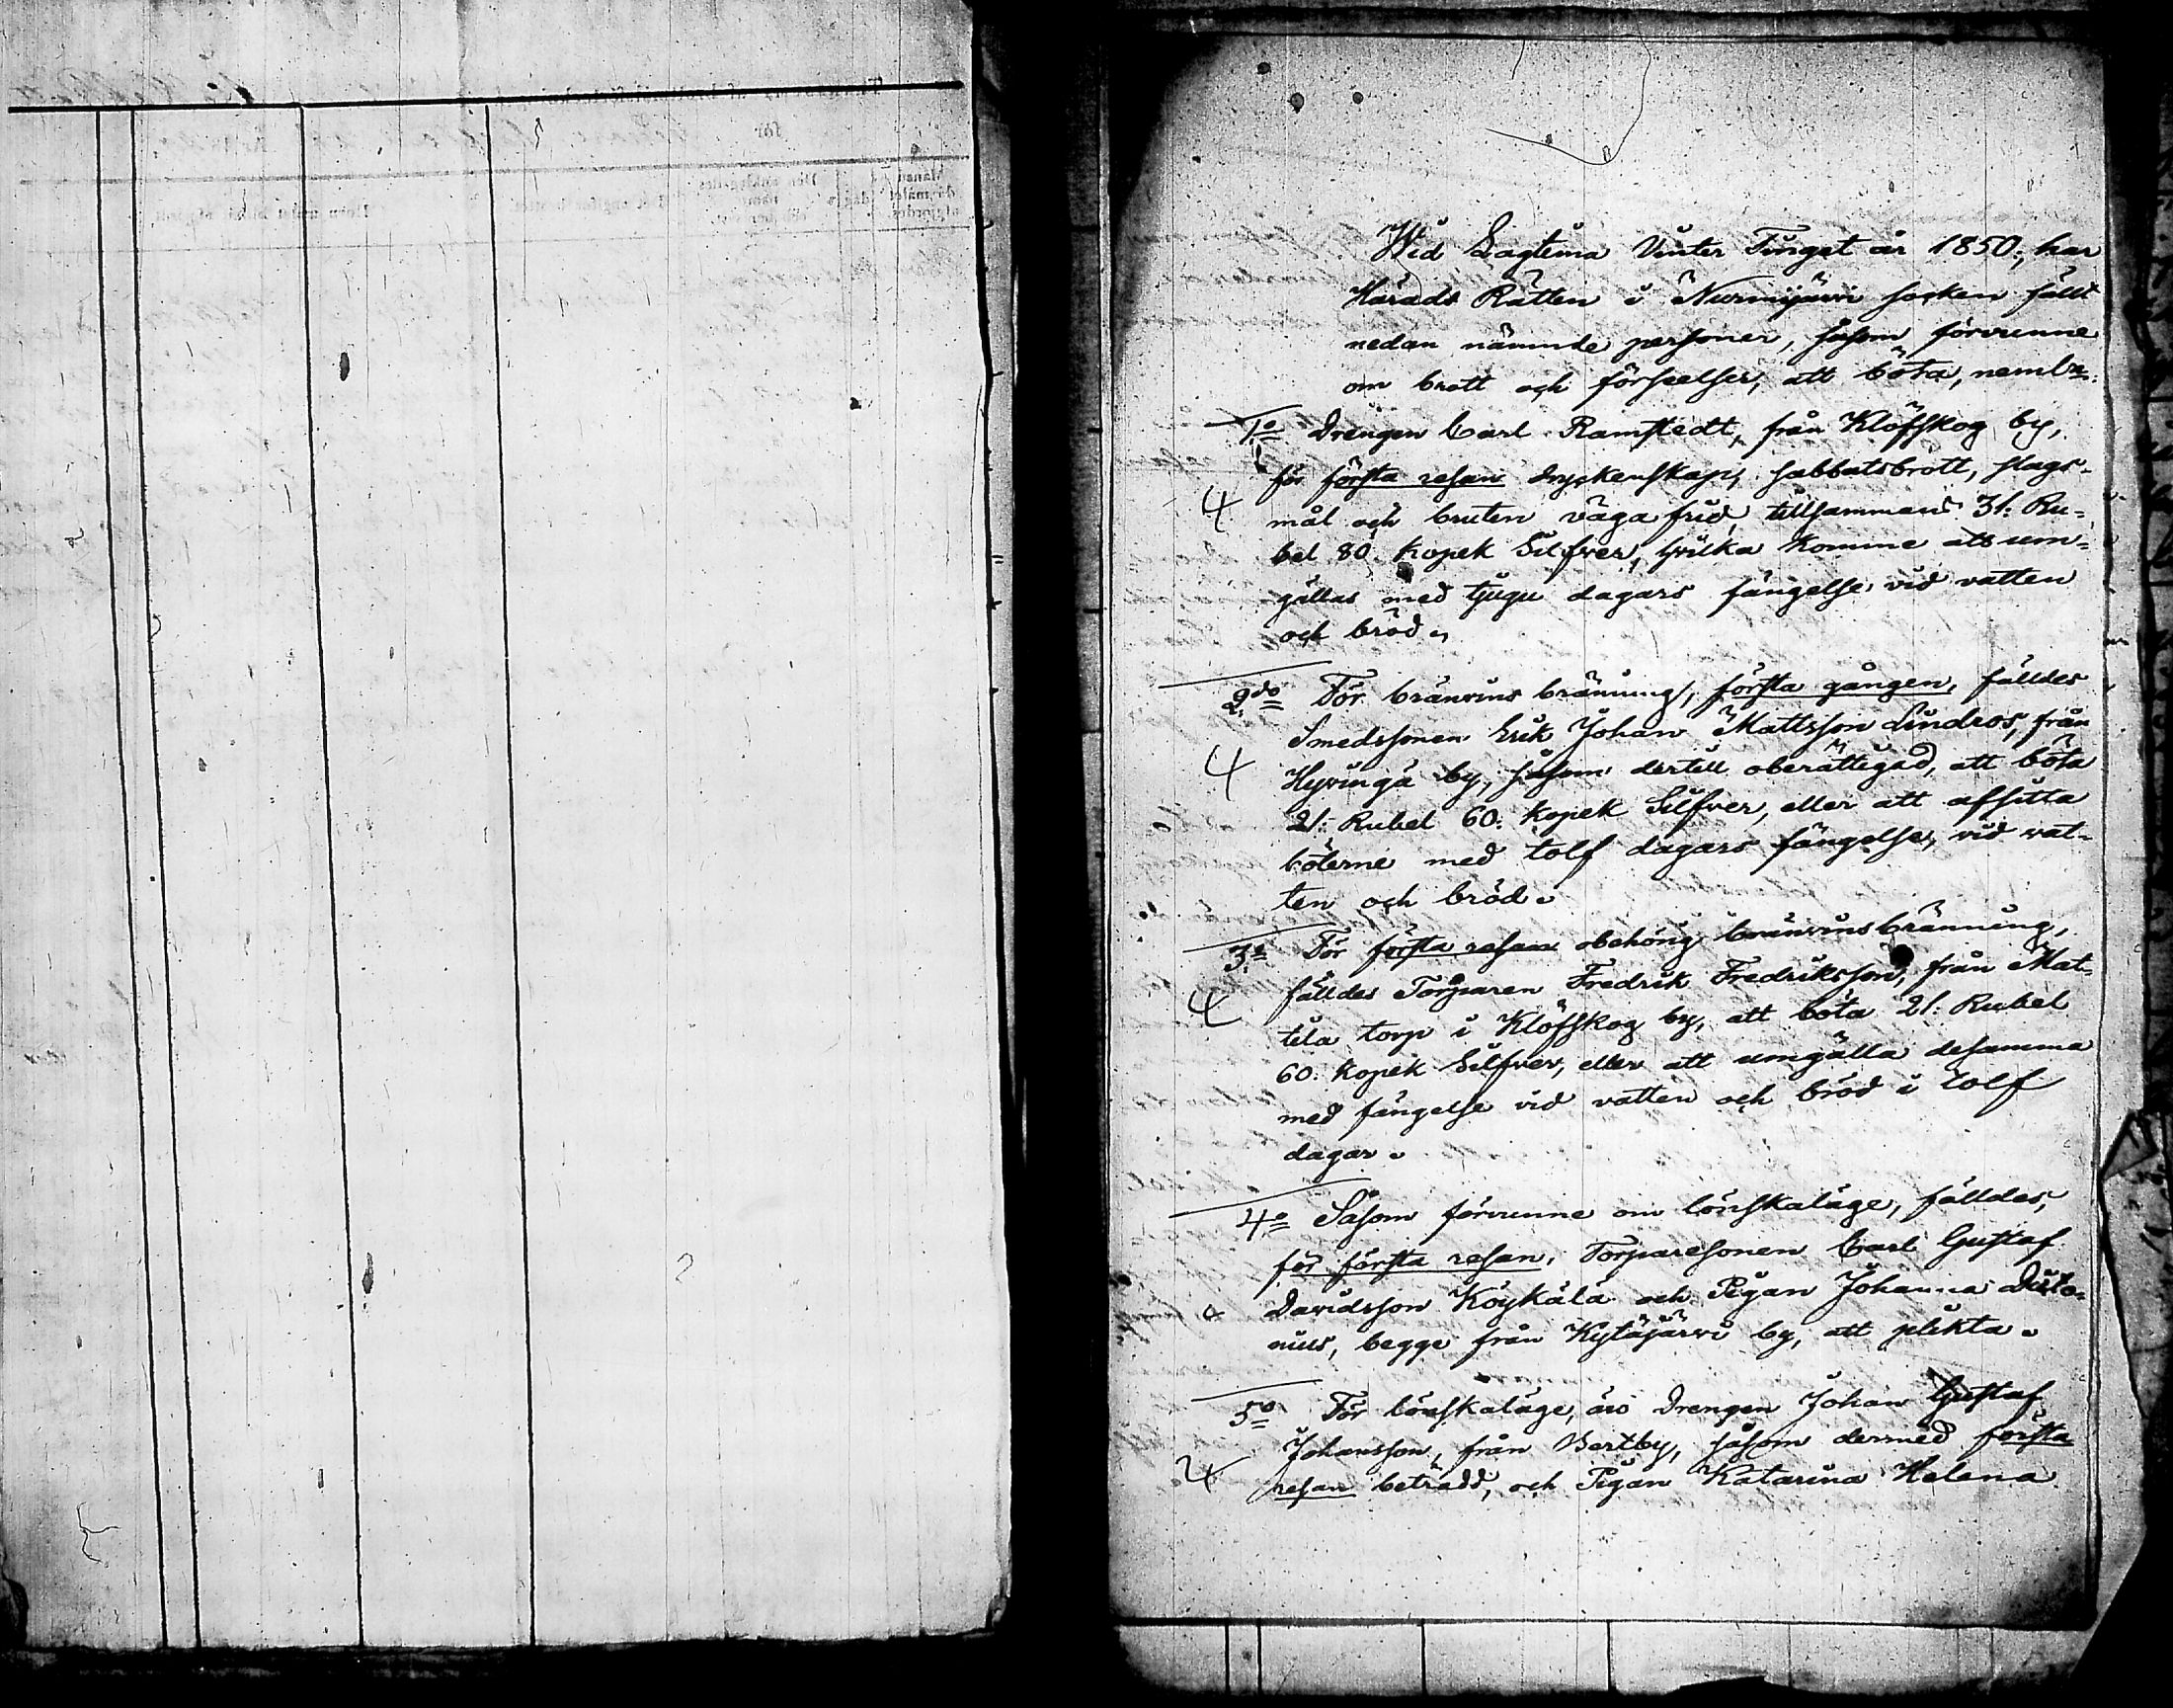 Wid Lagtima Vinter Tinget år 1850, har
Härads Rätten i Nurmijärvi socken fällt
nedan nämnde personer, såsom förvunne
om brott och förseelser, att böta, neml:n:
1:o Drengen Carl Ramstedt, från Klöfskog by,
för första resan dryckenskap, sabbatsbrott, slags-
4 mål och bruten väga frid, tillsammans 31: Ru-
bel 80. Kopek Silfver, hvilka komme att um-
gällas med tjugu dagars fängelse vid vatten
och bröd.
2:do För bränvins bränning, första gången, fälldes
Smedssonen Erik Johan Mattsson Lindros, från
4 Hyvinga by, såsom dertill oberättigad, att böta
21: Rubel 60: Kopek Silfver, eller att afsitta
böterne med tolf dagars fängelse, vid vat-
ten och bröd.
3:o För första resan obehörig bränvinsbränning,
4 fälldes Torparen Fredrik Fredriksson, från Mat-
tila torp i Klöfskog by, att böta 21: Rubel
60: Kopek Silfver, eller att umgälla desamma
med fängelse vid vatten och bröd i tolf
dagar.
4:o Såsom förvunne om lönskaläge, fälldes,
för första resan, Torparesonen Carl Gustaf
Davidsson Köykälä och Pigan Johanna
nius, begge från Kytäjärvi by, att plikta.
5:o För lönskaläge, äro Drengen Johan Gustaf
Johansson, från Bertby, såsom dermed första
4 resan beträdd, och Pigan Katarina Helena